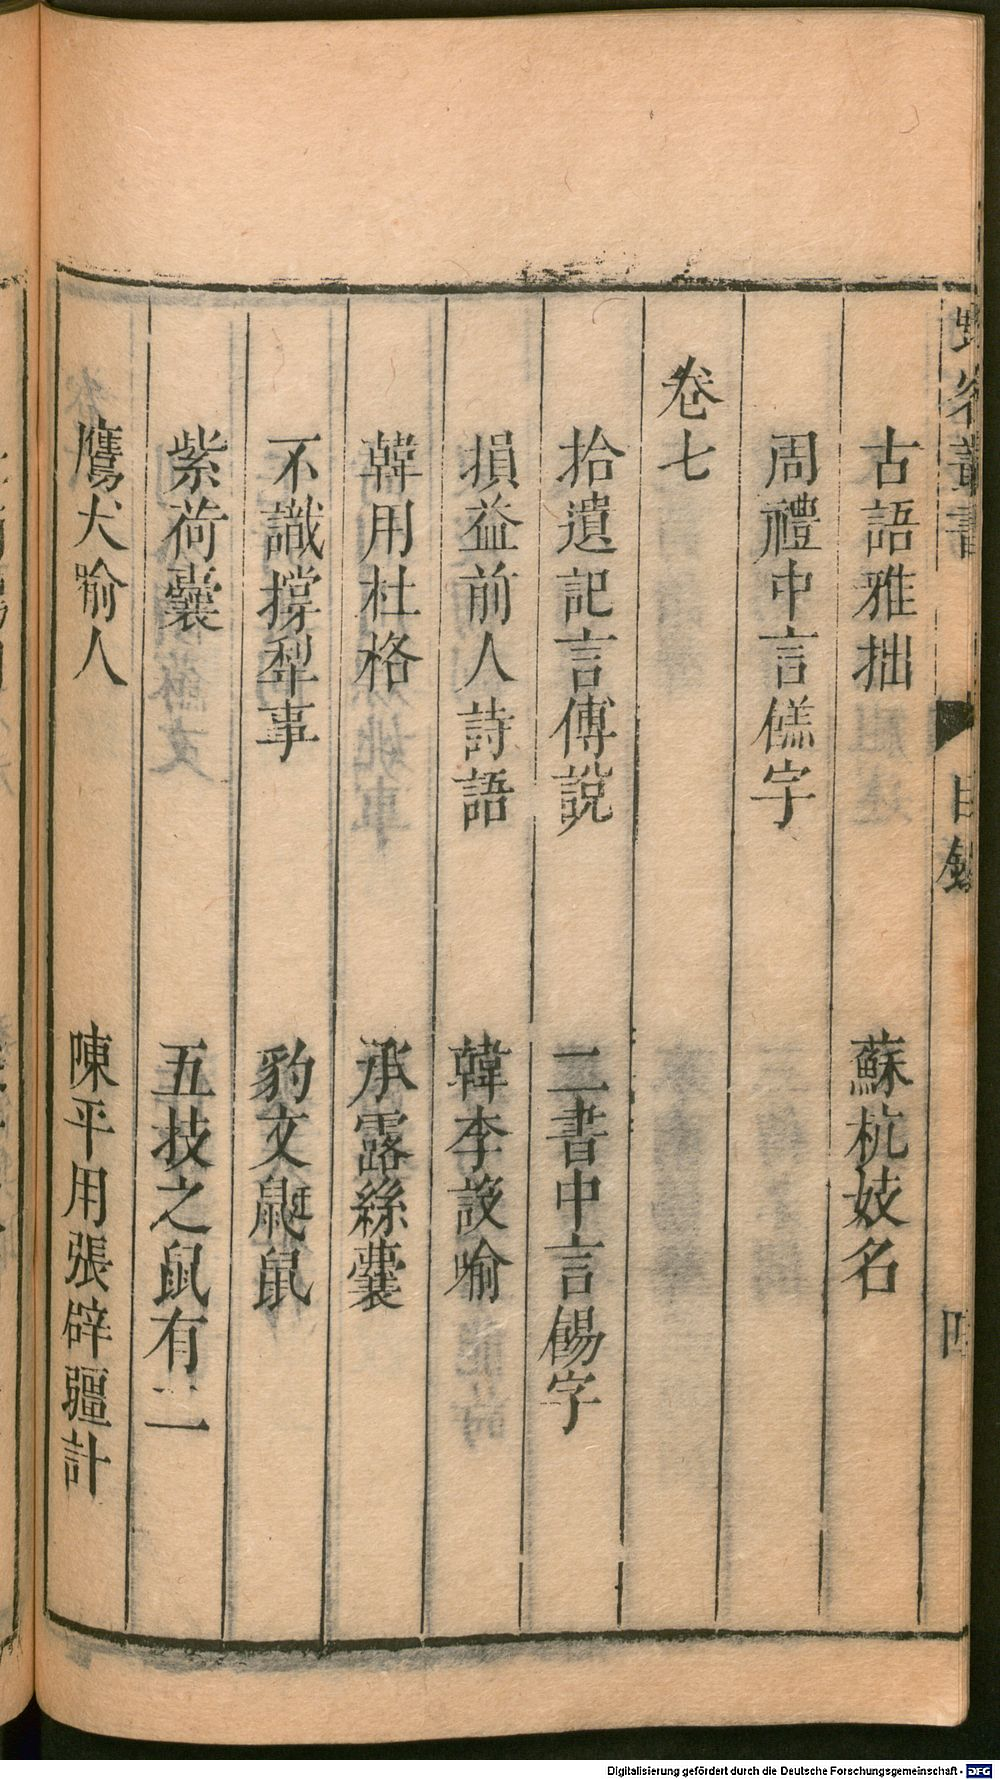 野客叢書 目錄 四
古語雅拙 蘇杭妓名
周禮中言僞字
卷七
拾遺記言傅說 二書中言餳字
損益前人詩語 韓李設喻
韓用杜格 承露絲囊
不識撐犁事 豹文鼮鼠
紫荷囊 五技之鼠有二
鷹犬喻人 陳平用張辟疆計
Digitalisierung gefördert durch die Deutsche Forschungsgemeinschaft - DFG